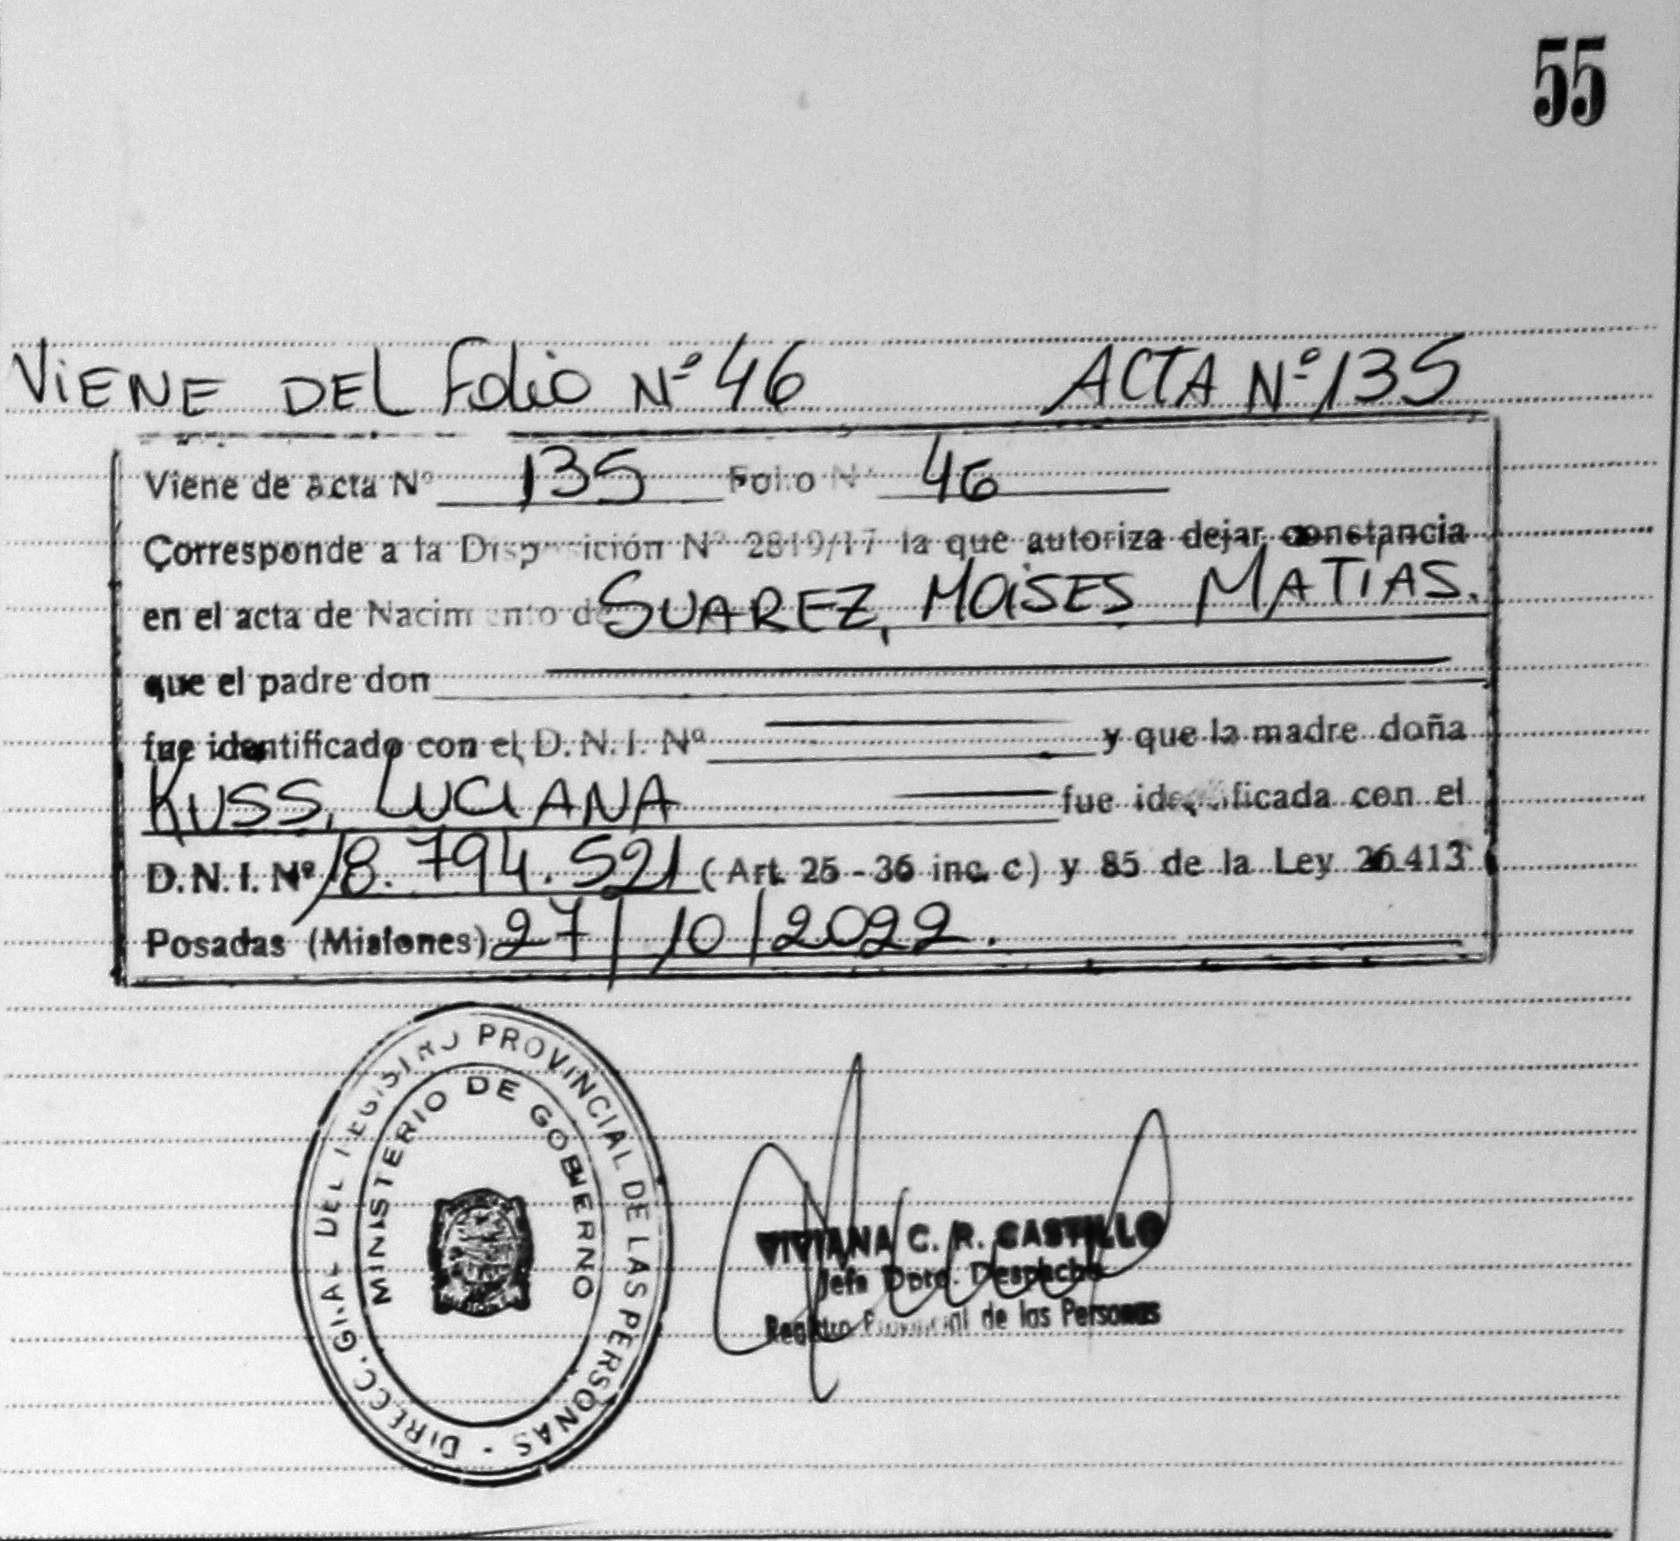 55
ViENE DEL Folio Nº 46 ACTA Nº 135
Viene de acta Nº 135 Folio Nº 46
Corresponde a la Disposición Nº 2819/17 la que autoriza dejar constancia
en el acta de Nacimiento de SUAREZ, MOiSES MATiAS.
que el padre don
fue identificado con el D.N.I. Nº y que la madre doña
KUSS, LUCIANA fue identificada con el
D.N.I. Nº 18.794.521 (Art. 25 - 36 inc. c) y 85 de la Ley 26.413
Posadas (Misiones) 27/10/2022.
DIRECC. GRAL DEL REGISTRO PROVINCIAL DE LAS PERSONAS -
MINISTERIO DE GOBIERNO
VIVIANA C. R. CASTILLO
Jefa Dpto. Despacho
Registro Provincial de las Personas